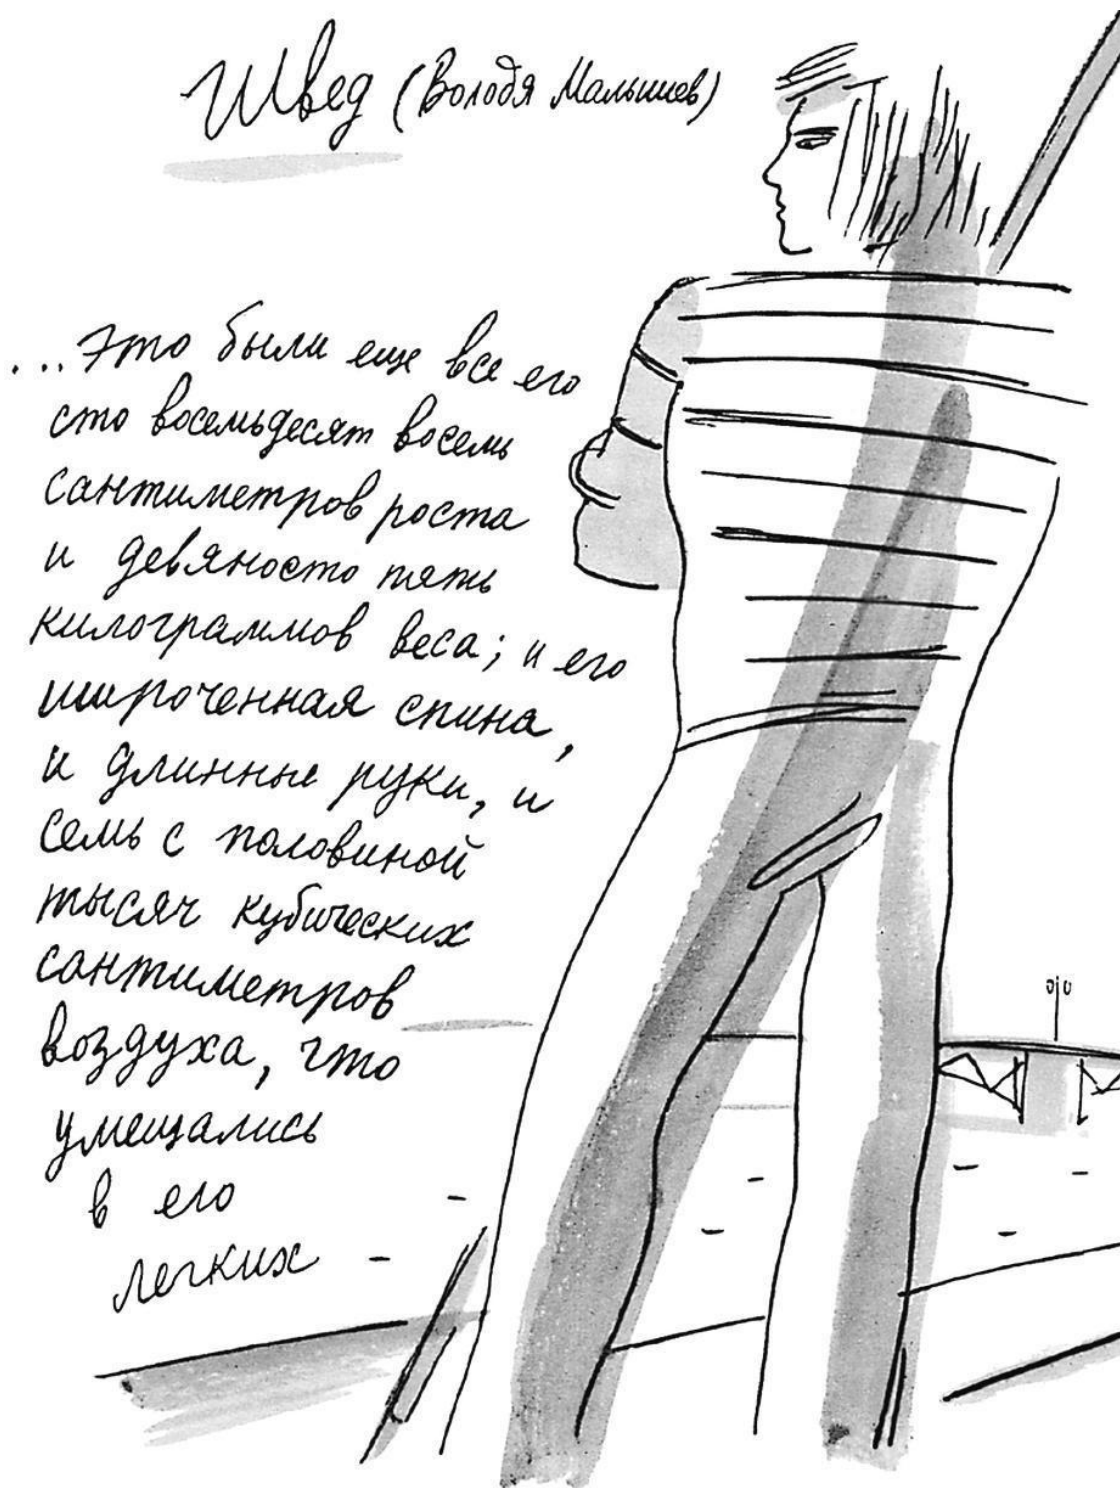 Швед (Володя Малышев)
...это были еще все его
сто восемьдесят восемь
сантиметров роста
и девяносто пять
килограммов веса; и его
широченная спина,
и длинные руки, и
семь с половиной
тысяч кубических
сантиметров
воздуха, что
умещались
в его
легких